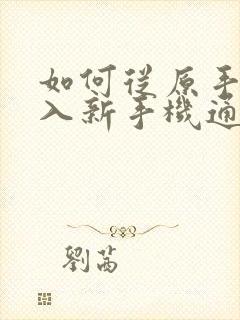 如何從原手
入新手機通
劉茜